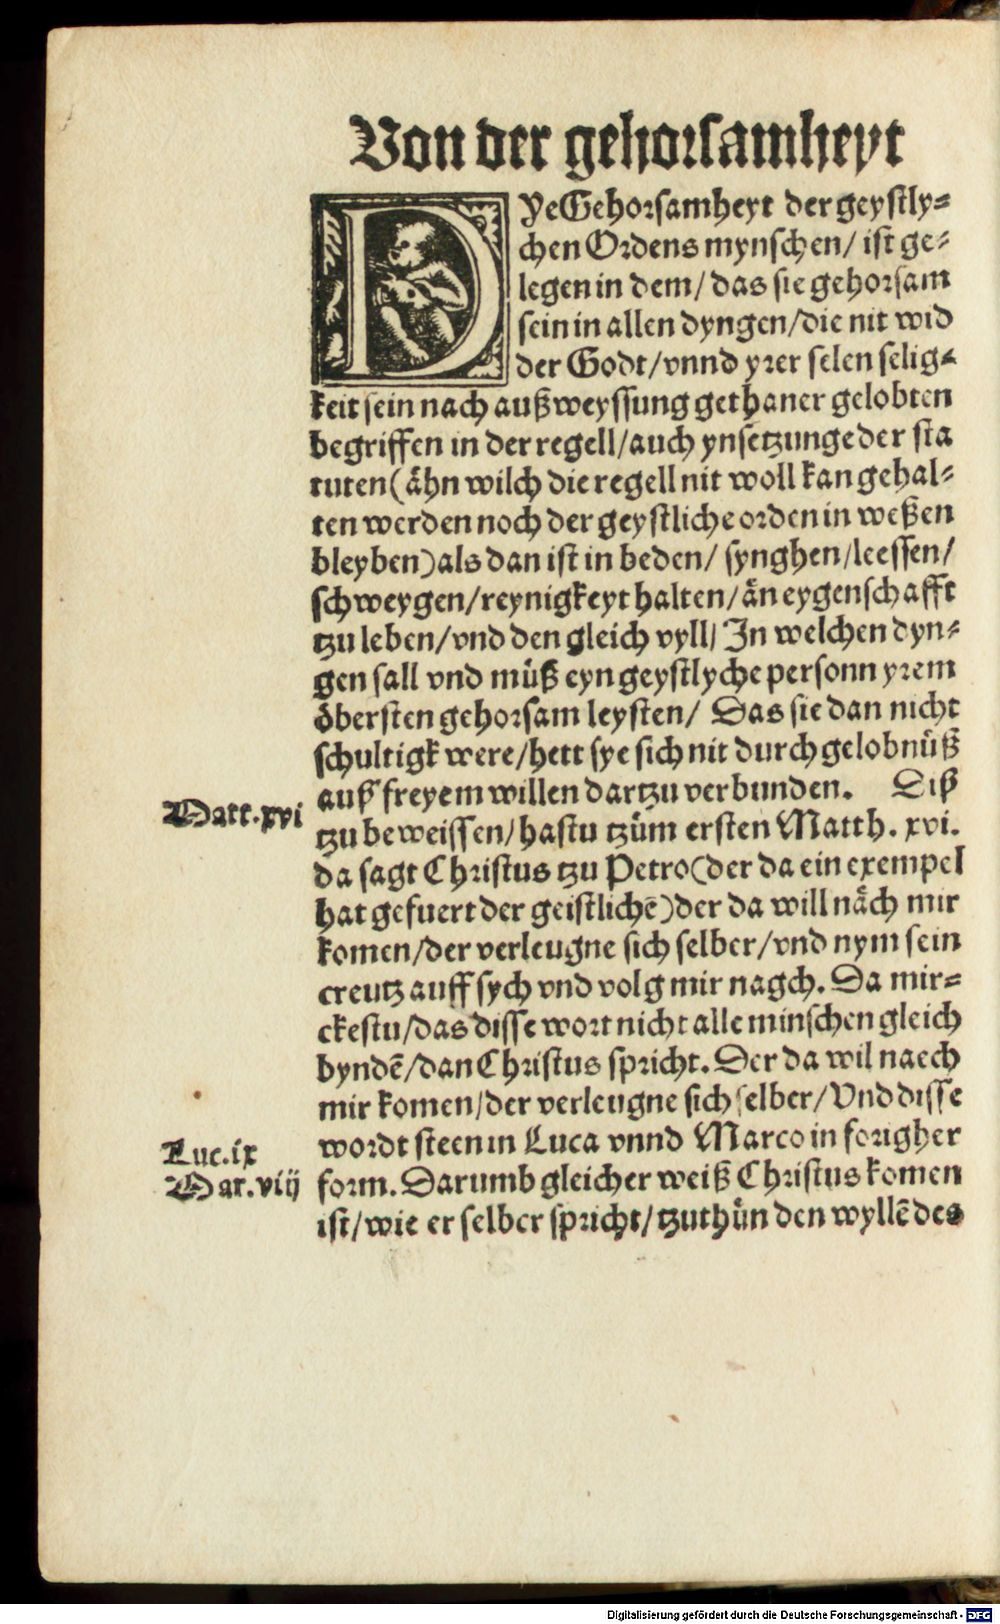 Von der gehorsamheyt
DYe Gehorsamheyt der geystly=
chen Ordens mynschen/ ist ge=
legen in dem/ das sie gehorsam
sein in allen dyngen/die nit wid
der Godt/vnnd yrer selen selig=
keit sein nach außweyssung gethaner gelobten
begriffen in der regell/auch ynsetzunge der sta
tuten (ähn wilch die regell nit woll kan gehal=
ten werden noch der geystliche orden in weßen
bleyben) als dan ist in beden/ synghen/leessen/
schweygen/reynigkeyt halten/än eygenschafft
tzu leben/vnd den gleich vyll/ In welchen dyn=
gen sall vnd müß eyn geystlyche personn yrem
öbersten gehorsam leysten/ Das sie dan nicht
schultigk were/hett sye sich nit durch gelobnüß
auß freyem willen dartzu verbunden. Diß
Matt.xvi
tzu beweissen/hastu tzüm ersten Matth. xvi.
da sagt Christus tzu Petro (der da ein exempel
hat gefuert der geistlichē) der da will näch mir
komen/der verleugne sich selber/vnd nym sein
creutz auff sych vnd volg mir nagch. Da mir=
ckestu/das disse wort nicht alle minschen gleich
byndē/dan Christus spricht. Der da wil naech
mir komen/der verleugne sich selber/Vnd disse
Luc.ix
wordt steen in Luca vnnd Marco in forigher
Mar.viij
form. Darumb gleicher weiß Christus komen
ist/wie er selber spricht/tzuthün den wyllē des
Digitalisierung gefördert durch die Deutsche Forschungsgemeinschaft - DFG